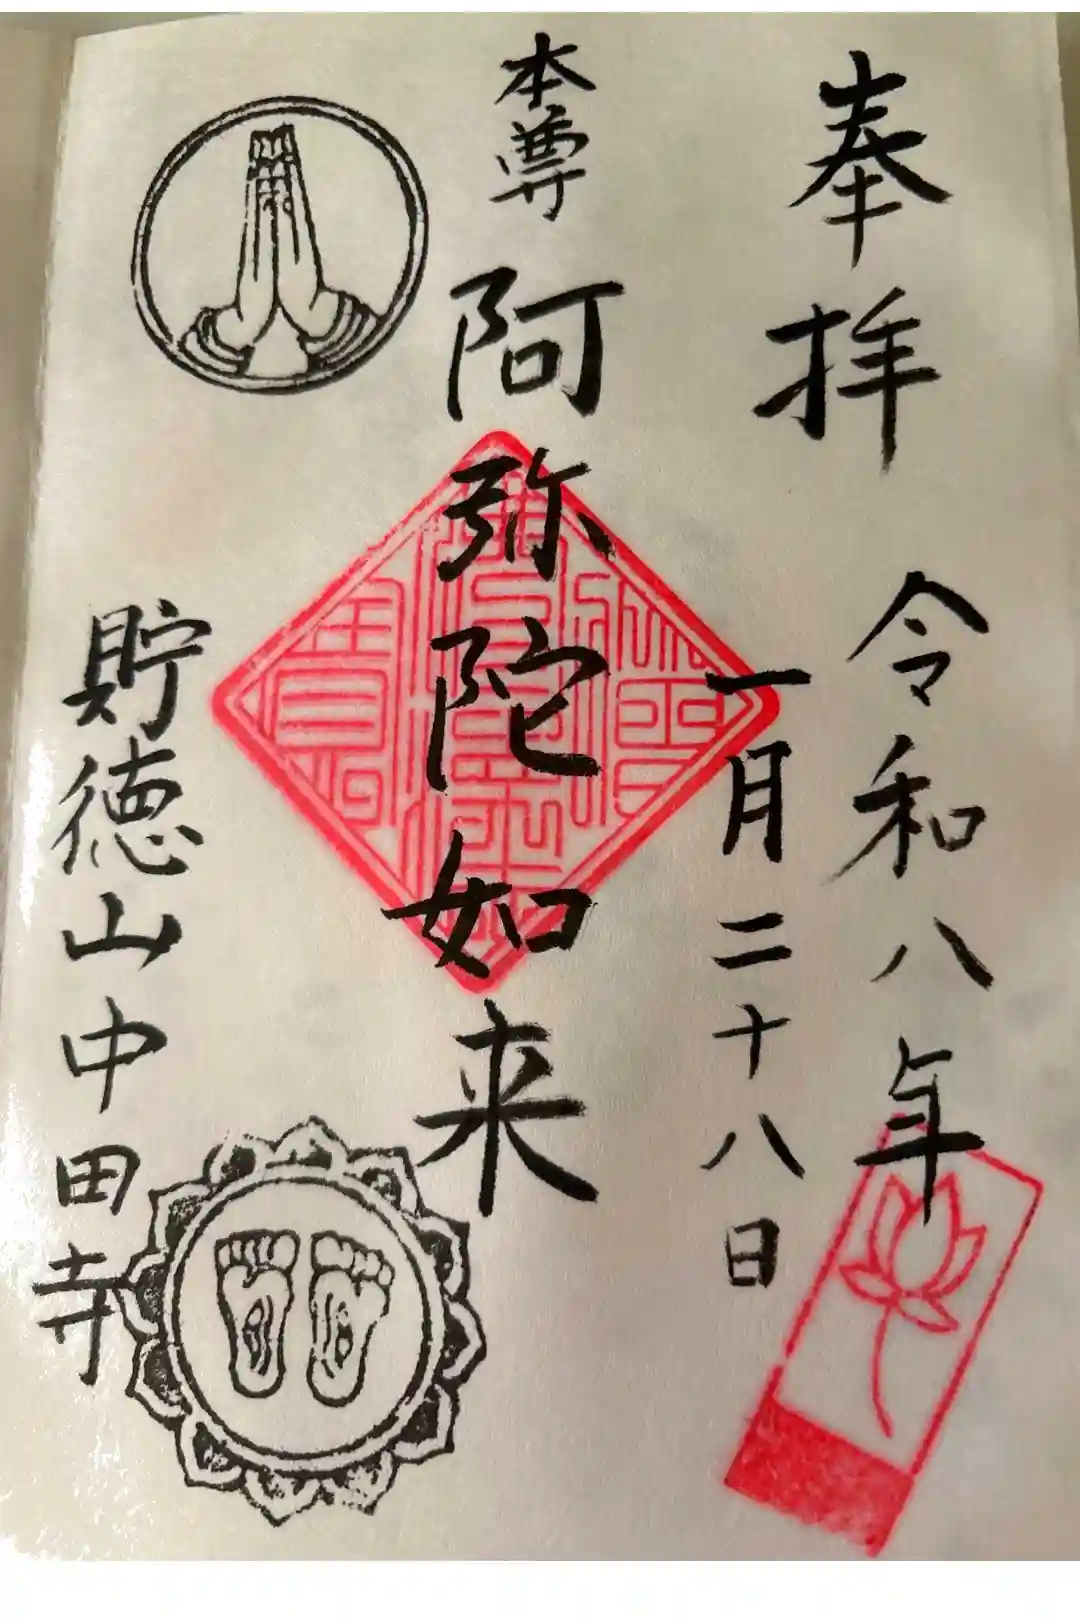 奉拝
令和八年
一月二十八日
本尊
阿弥陀如来
貯徳山中田寺